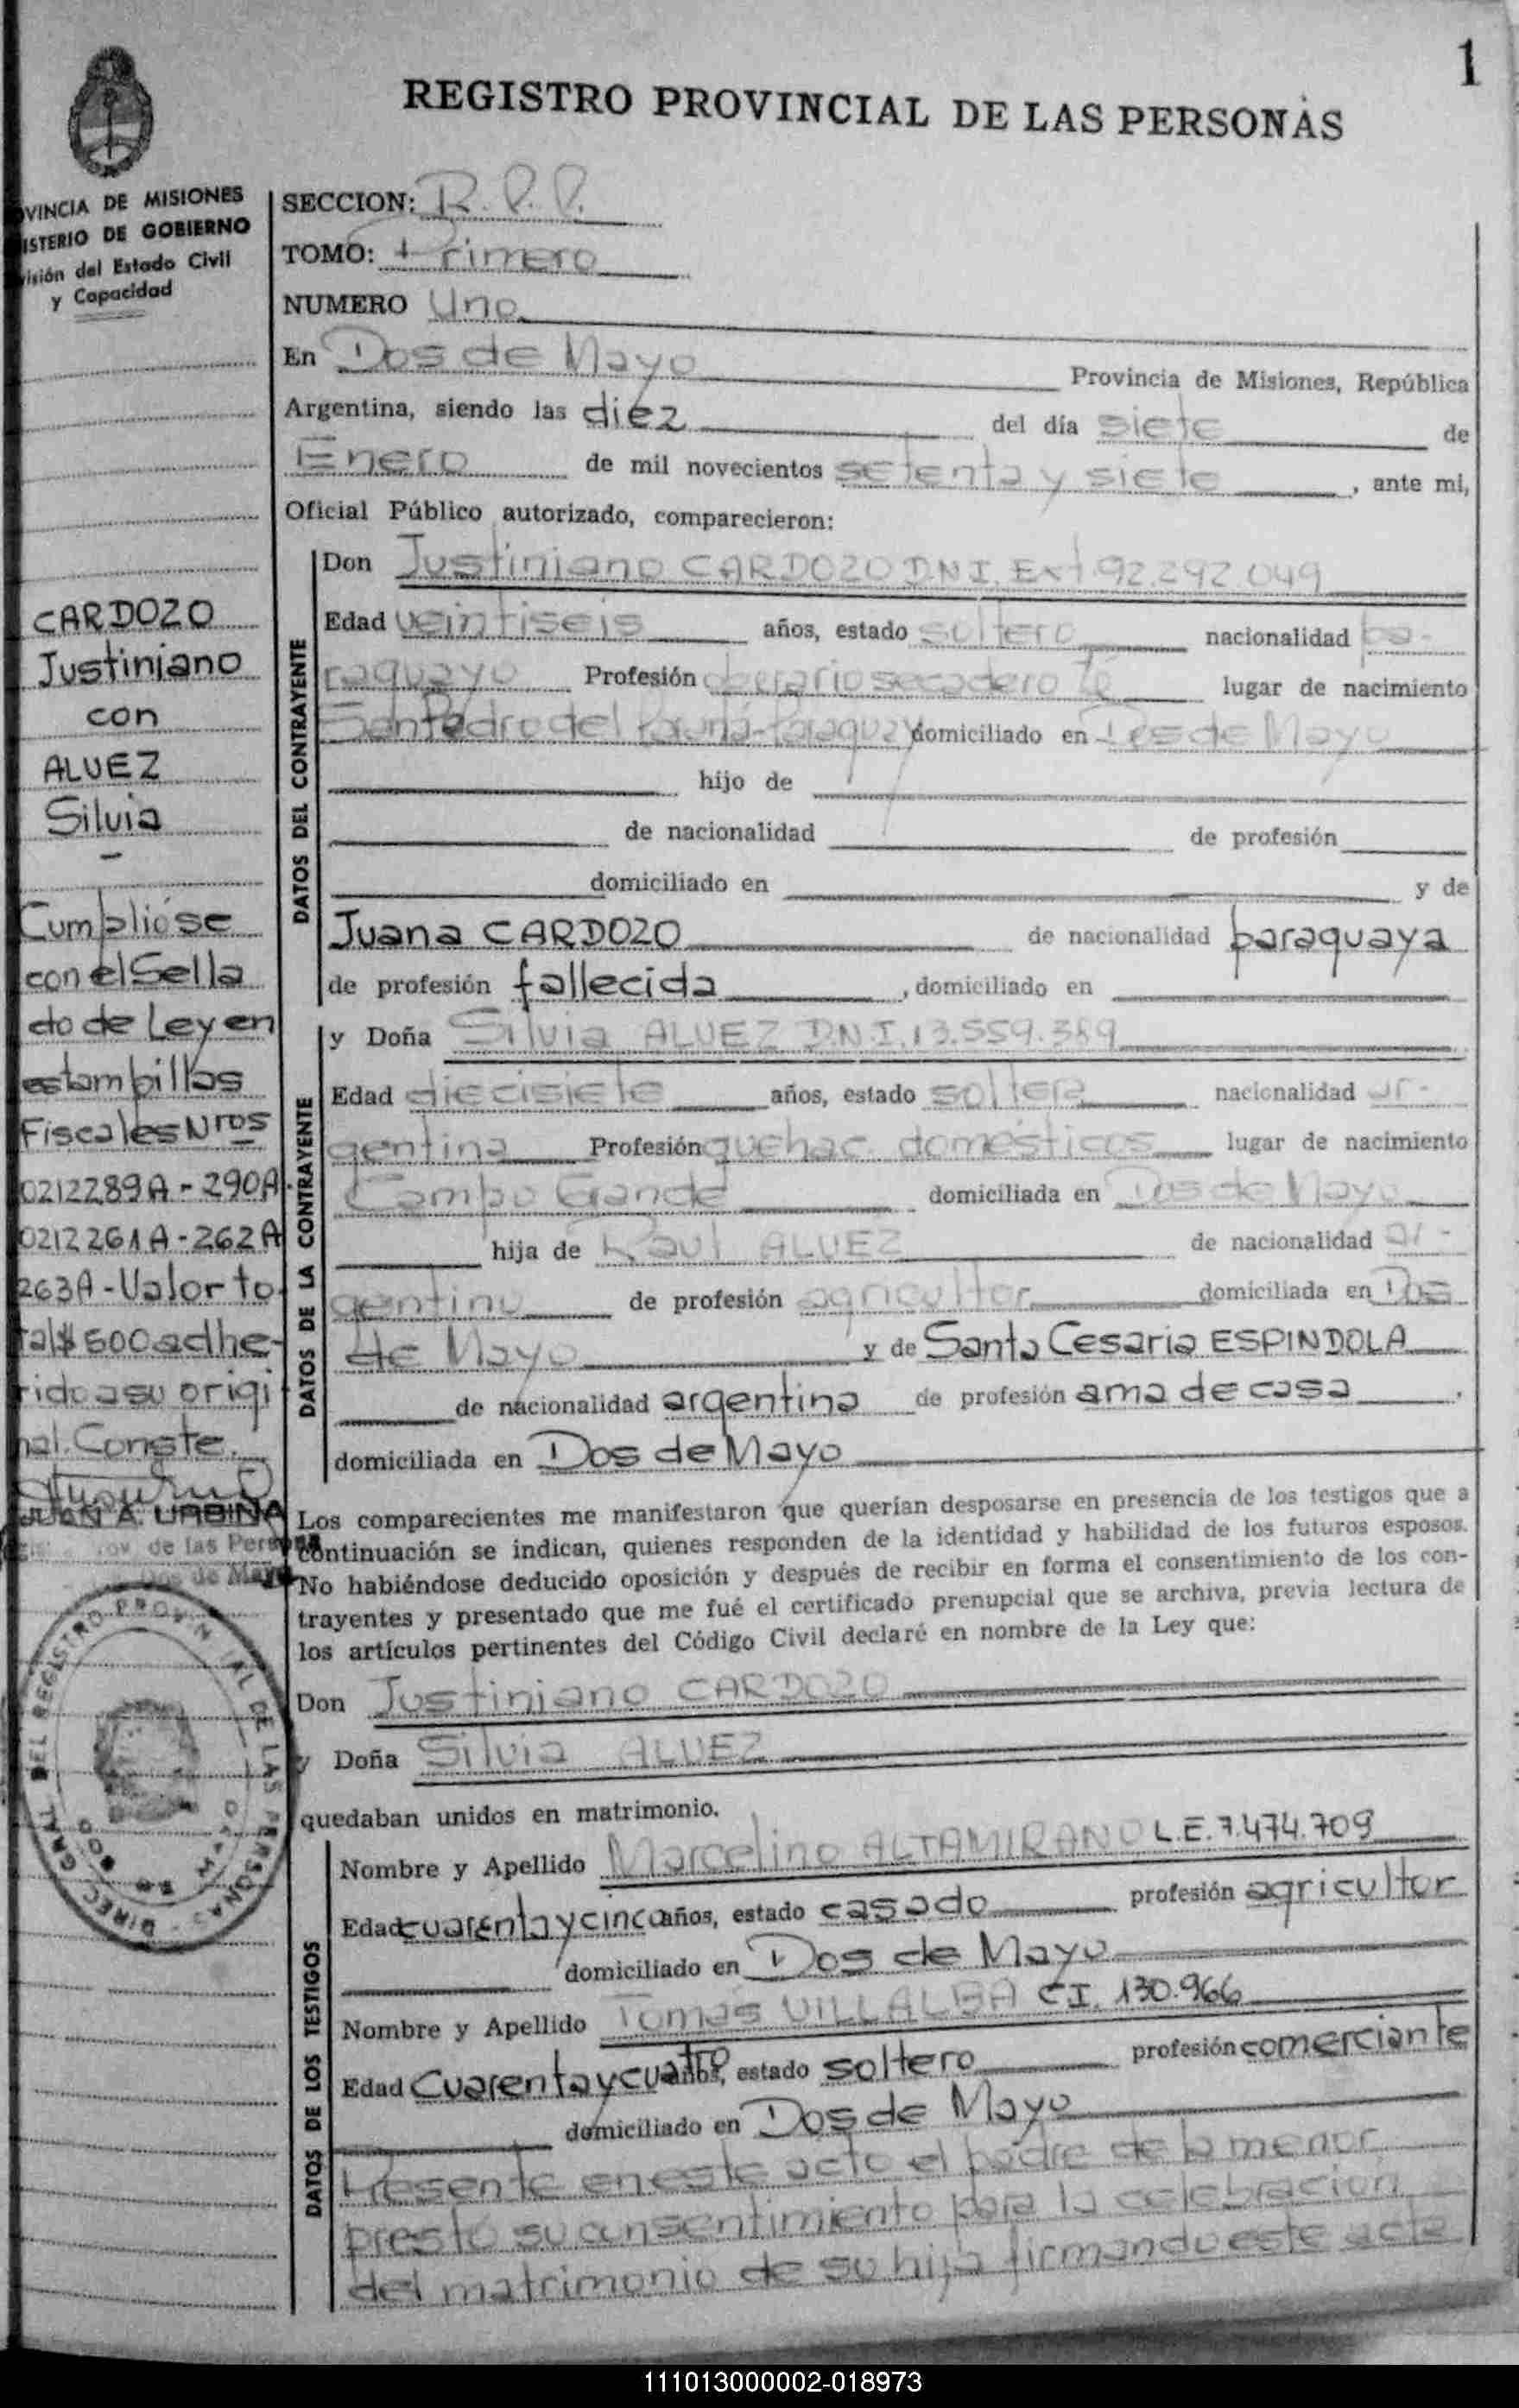 1
REGISTRO PROVINCIAL DE LAS PERSONAS
VINCIA DE MISIONES
ISTERIO DE GOBIERNO
visión del Estado Civil
y Capacidad
CARDOZO
Justiniano
con
ALVEZ
Silvia
-
Cumplióse
con el Sella
do de Ley en
estampillas
Fiscales Nros
0212289A - 290A.
0212261A - 262A
263A - Valor to
tal $ 500 adhe-
rido a su origi
nal. Conste.
JUAN A. URBINA
de las Personas
Dos de Mayo
DIREC. GRAL. DEL REGISTRO PROVINCIAL DE LAS PERSONAS
SECCION: R.P.P.
TOMO: Primero
NUMERO Uno
En Dos de Mayo Provincia de Misiones, República
Argentina, siendo las diez del día siete de
Enero de mil novecientos setenta y siete, ante mi,
Oficial Público autorizado, comparecieron:
DATOS DEL CONTRAYENTE
Don Justiniano CARDOZO D.N.I. Ext. 92.292.049
Edad veintiseis años, estado soltero nacionalidad pa-
raguayo Profesión operario secadero Té lugar de nacimiento
San Pedro del Paraná-Paraguay domiciliado en Dos de Mayo
hijo de
de nacionalidad de profesión
domiciliado en y de
Juana CARDOZO de nacionalidad paraguaya
de profesión fallecida, domiciliado en
DATOS DE LA CONTRAYENTE
y Doña Silvia ALVEZ D.N.I. 13.559.389
Edad diecisiete años, estado soltera nacionalidad ar-
gentina Profesión quehac. domésticos lugar de nacimiento
Campo Grande domiciliada en Dos de Mayo
hija de Raul ALVEZ de nacionalidad ar-
gentino de profesión agricultor domiciliada en Dos
de Mayo y de Santa Cesaria ESPINDOLA
de nacionalidad argentina de profesión ama de casa.
domiciliada en Dos de Mayo
Los comparecientes me manifestaron que querían desposarse en presencia de los testigos que a
continuación se indican, quienes responden de la identidad y habilidad de los futuros esposos.
No habiéndose deducido oposición y después de recibir en forma el consentimiento de los con-
trayentes y presentado que me fué el certificado prenupcial que se archiva, previa lectura de
los artículos pertinentes del Código Civil declaré en nombre de la Ley que:
Don Justiniano CARDOZO
y Doña Silvia ALVEZ
quedaban unidos en matrimonio.
DATOS DE LOS TESTIGOS
Nombre y Apellido Marcelino ALTAMIRANO L.E. 7.474.709
Edad cuarenta y cinco años, estado casado profesión agricultor
domiciliado en Dos de Mayo
Nombre y Apellido Tomás VILLALBA C.I. 130.966
Edad Cuarenta y cuatro años, estado soltero profesión comerciante
domiciliado en Dos de Mayo
Presente en este acto el padre de la menor
prestó su consentimiento para la celebración
del matrimonio de su hija firmando este acta
111013000002-018973